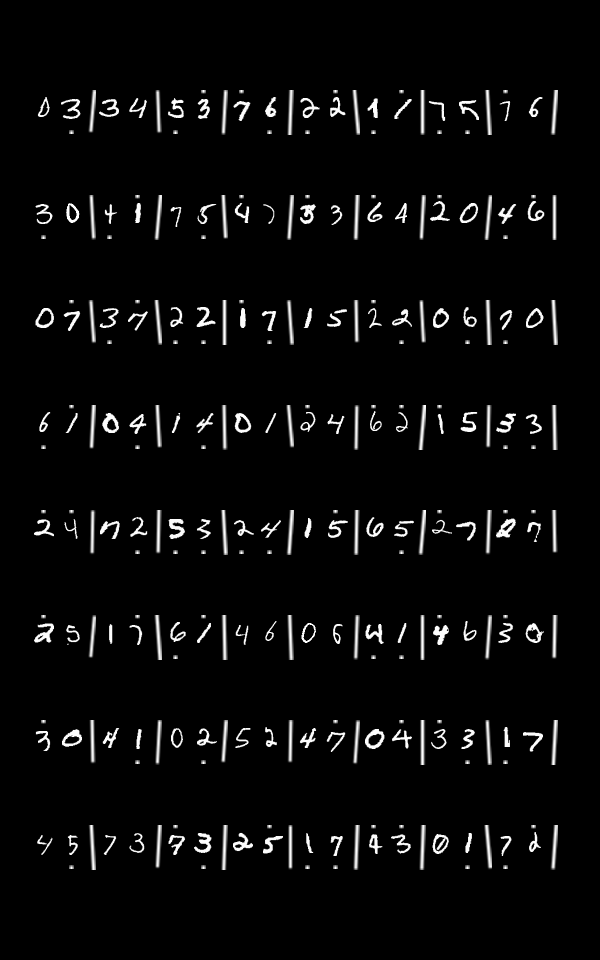 0 3̣ | 3 4 | 5̣ 3̇ | 7̇ 6̣ | 2̣ 2̇ | 1̣ 1̇ | 7̣ 5̣ | 7̇ 6 |
3̣ 0 | 4̣ 1̇ | 7 5̣ | 4̇ 7 | 3̇ 3 | 6̇ 4 | 2̇ 0 | 4̣ 6̇ |
0 7̇ | 3̣ 7̇ | 2̇ 2̇ | 1̇ 7̣ | 1 5 | 2̇ 2̣ | 0 6̣ | 7̣ 0 |
6̣ 1̇ | 0 4̣ | 1 4̣ | 0 1 | 2̇ 4 | 6 2̇ | 1̇ 5 | 3̣ 3̣ |
2̇ 4̇ | 7 2̣ | 5̣ 3̣ | 2̣ 4̣ | 1 5̇ | 6 5̣ | 2̇ 7 | 2̇ 7̇ |
2̇ 5 | 1 7̇ | 6̣ 1̇ | 4 6 | 0 6̇ | 4̣ 1̣ | 4̇ 6 | 3̇ 0 |
3̇ 0 | 4 1̣ | 0 2̣ | 5 2 | 4 7̇ | 0 4̇ | 3̇ 3̣ | 1̇ 7 |
4 5̣ | 7 3 | 7̇ 3̣ | 2 5̇ | 1̣ 7̣ | 4̇ 3̇ | 0 1̣ | 7̣ 2̇ |